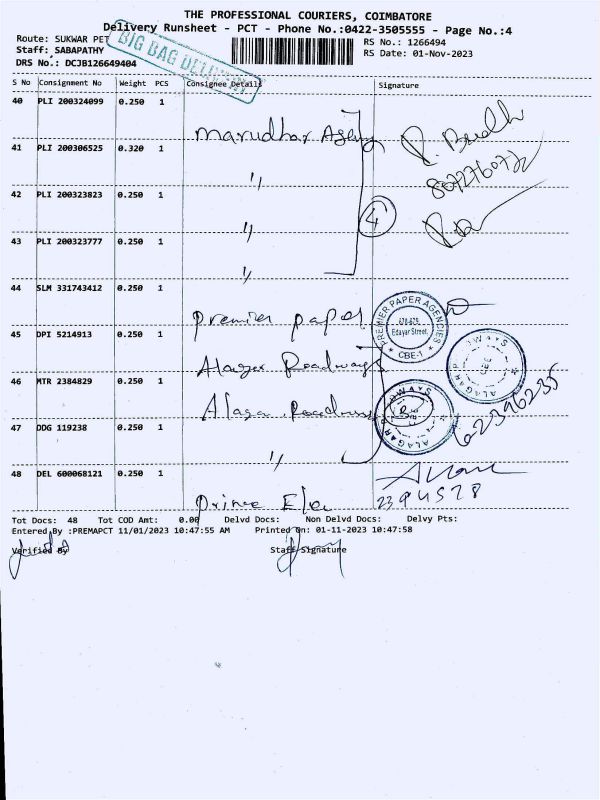 THE PROFESSIONAL COURIERS, COIMBATORE
Delivery Runsheet - PCT - Phone No.:0422-3505555 - Page No.:4
Route: SUKWAR PET
RS No.: 1266494
Staff: SABAPATHY
RS Date: 01-Nov-2023
DRS No.: DCJB126649404
BIG BAG DELIVERY
S No Consignment No Weight PCS Consignee Details Signature
40 PLI 200324099 0.250 1
Marudhar Agency
R.
8072760772
41 PLI 200306525 0.320 1
"
42 PLI 200323823 0.250 1
" 4
43 PLI 200323777 0.250 1
"
44 SLM 331743412 0.250 1
Premier paper
PREMIER PAPER AGENCIES
Edayar Street,
CBE-1
45 DPI 5214913 0.250 1
Alagar Roadways
46 MTR 2384829 0.250 1
Alagar Roadways
ALAGAR ROADWAYS
CBE
ALAGAR ROADWAYS
47 DDG 119238 0.250 1
"
62396235
48 DEL 600068121 0.250 1
Prime Ele
2394578
Tot Docs: 48 Tot COD Amt: 0.00 Delvd Docs: Non Delvd Docs: Delvy Pts:
Entered By :PREMAPCT 11/01/2023 10:47:55 AM Printed On: 01-11-2023 10:47:58
Verified By Staff Signature